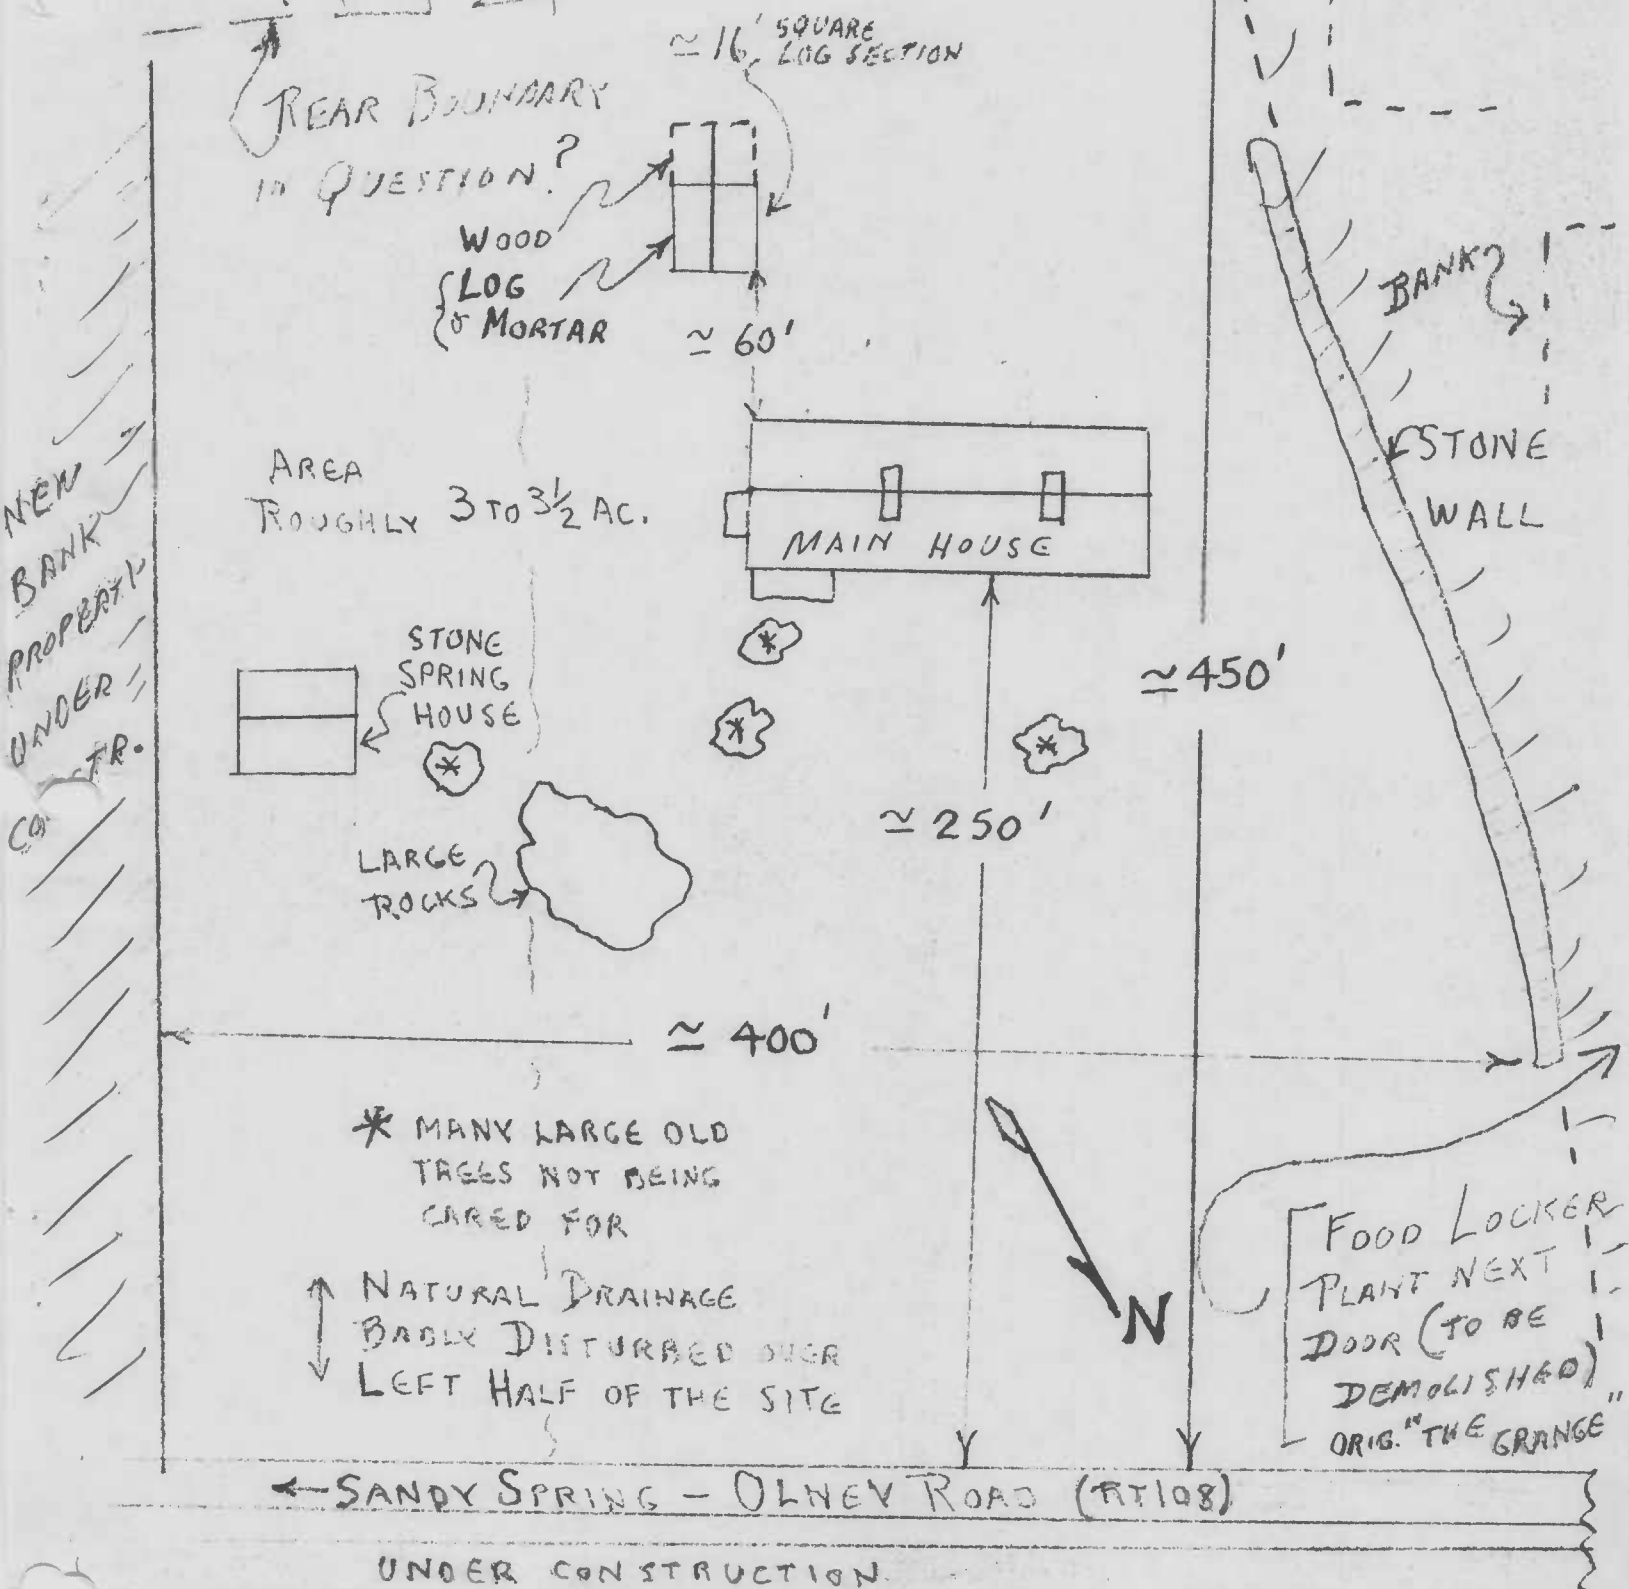 ≃ 16' SQUARE
LOG SECTION
REAR BOUNDARY
in QUESTION?
WOOD
LOG
& MORTAR
≃ 60'
BANK
STONE
WALL
AREA
ROUGHLY 3 TO 3½ AC.
MAIN HOUSE
NEW
BANK
PROPERTY
UNDER
STONE
SPRING
HOUSE
*
*
*
*
≃ 450'
≃ 250'
LARGE
ROCKS
≃ 400'
* MANY LARGE OLD
TREES NOT BEING
CARED FOR
NATURAL DRAINAGE
BADLY DISTURBED OVER
LEFT HALF OF THE SITE
N
FOOD LOCKER
PLANT NEXT
DOOR (TO BE
DEMOLISHED)
ORIG. "THE GRANGE"
← SANDY SPRING – OLNEY ROAD (RT108)
UNDER CONSTRUCTION